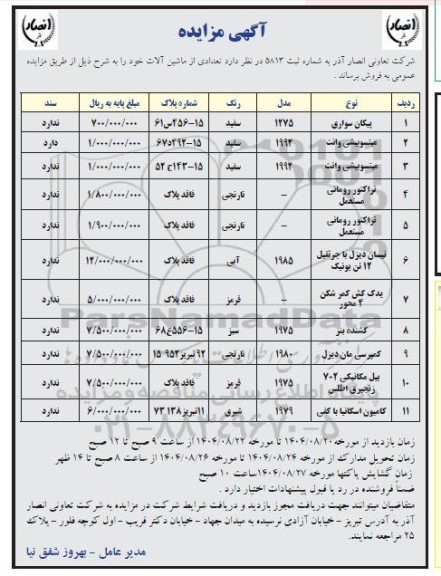 انصار
آگهی مزایده
انصار
شرکت تعاونی انصار آذر به شماره ثبت ۵۸۱۳ در نظر دارد تعدادی از ماشین آلات خود را به شرح ذیل از طریق مزایده
عمومی به فروش برساند .
ردیف نوع مدل رنگ شماره پلاک مبلغ پایه به ریال سند
۱ پیکان سواری ۱۳۷۵ سفید ۱۵-۲۵۶س۶۱ ۷۰۰/۰۰۰/۰۰۰ ندارد
۲ میتسوبیشی وانت ۱۹۹۲ سفید ۱۵-۲۹۲د۶۷ ۱/۰۰۰/۰۰۰/۰۰۰ دارد
۳ میتسوبیشی وانت ۱۹۹۲ سفید ۱۵-۱۴۳ج۵۲ ۱/۰۰۰/۰۰۰/۰۰۰ ندارد
۴ تراکتور رومانی مستعمل - نارنجی فاقد پلاک ۱/۸۰۰/۰۰۰/۰۰۰ ندارد
۵ تراکتور رومانی مستعمل - نارنجی فاقد پلاک ۱/۹۰۰/۰۰۰/۰۰۰ ندارد
۶ نیسان دیزل با جرثقیل ۱۲ تن یونیک ۱۹۸۵ آبی فاقد پلاک ۱۲/۰۰۰/۰۰۰/۰۰۰ ندارد
۷ یدک کش کمر شکن ۴ محور - قرمز فاقد پلاک ۵/۰۰۰/۰۰۰/۰۰۰ ندارد
۸ کشنده بنز ۱۹۷۵ سبز ۱۵-۵۵۶ع۶۸ ۷/۵۰۰/۰۰۰/۰۰۰ ندارد
۹ کمپرسی مان دیزل ۱۹۸۰ نارنجی ۹۲تبریز۹۵۲ ۱۵ ۷/۵۰۰/۰۰۰/۰۰۰ ندارد
۱۰ بیل مکانیکی ۷۰۲ زنجیری اطلس ۱۹۷۵ قرمز فاقد پلاک ۷/۵۰۰/۰۰۰/۰۰۰ ندارد
۱۱ کامیون اسکانیا با کفی ۱۹۷۹ شیری ۱۱تبریز۱۳۸ ۷۳ ۶/۰۰۰/۰۰۰/۰۰۰ ندارد
ParsNamadData
۰۲۱-۸۸۳۴۹۶۷۰-۵
زمان بازدید از مورخه ۱۴۰۴/۰۸/۲۰ تا مورخه ۱۴۰۴/۰۸/۲۲ از ساعت ۹ صبح تا ۱۲ صبح
زمان تحویل مدارک از مورخه ۱۴۰۴/۰۸/۲۴ تا مورخه ۱۴۰۴/۰۸/۲۶ از ساعت ۸ صبح تا ۱۴ ظهر
زمان گشایش پاکتها مورخه ۱۴۰۴/۰۸/۲۷ ساعت ۱۰ صبح
ضمناً فروشنده در رد یا قبول پیشنهادات اختیار دارد .
متقاضیان میتوانند جهت دریافت مجوز بازدید و دریافت شرایط شرکت در مزایده به شرکت تعاونی انصار
آذر به آدرس تبریز – خیابان آزادی نرسیده به میدان جهاد – خیابان دکتر قریب – اول کوچه فلور – پلاک
۲۵ مراجعه نمایند.
مدیر عامل – بهروز شفق نیا